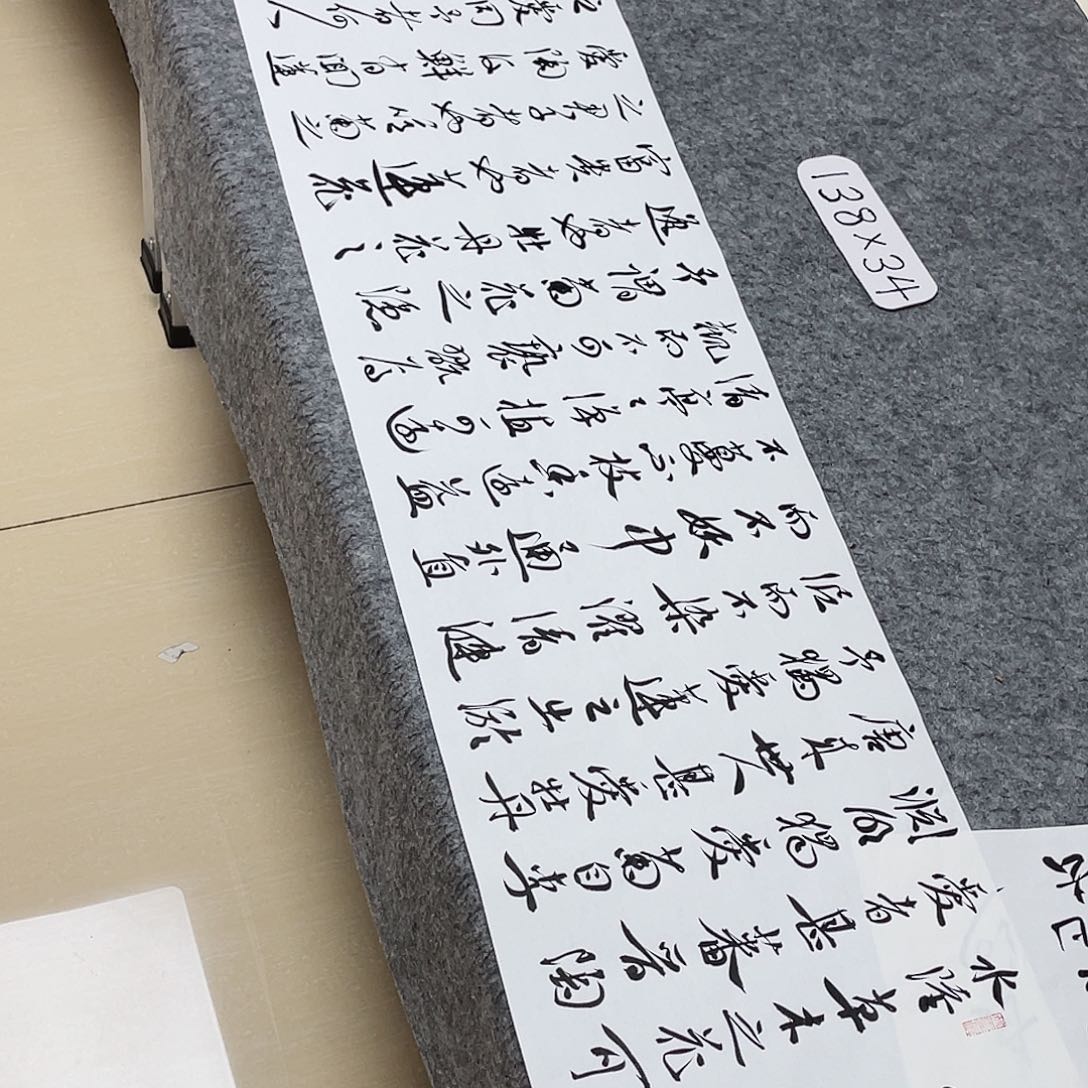 水陸草木之花可
愛者甚蕃晉陶
淵明獨愛菊自李
唐來世人甚愛牡丹
予獨愛蓮之出淤
泥而不染濯清漣
而不妖中通外直
不蔓不枝香遠益
清亭々淨植可遠
觀而不可褻翫焉
予謂菊花之隱
逸者也牡丹花之
富貴者也蓮花
之君子者也噫菊之
愛陶後鮮有聞蓮
之愛同予者何人
138×34